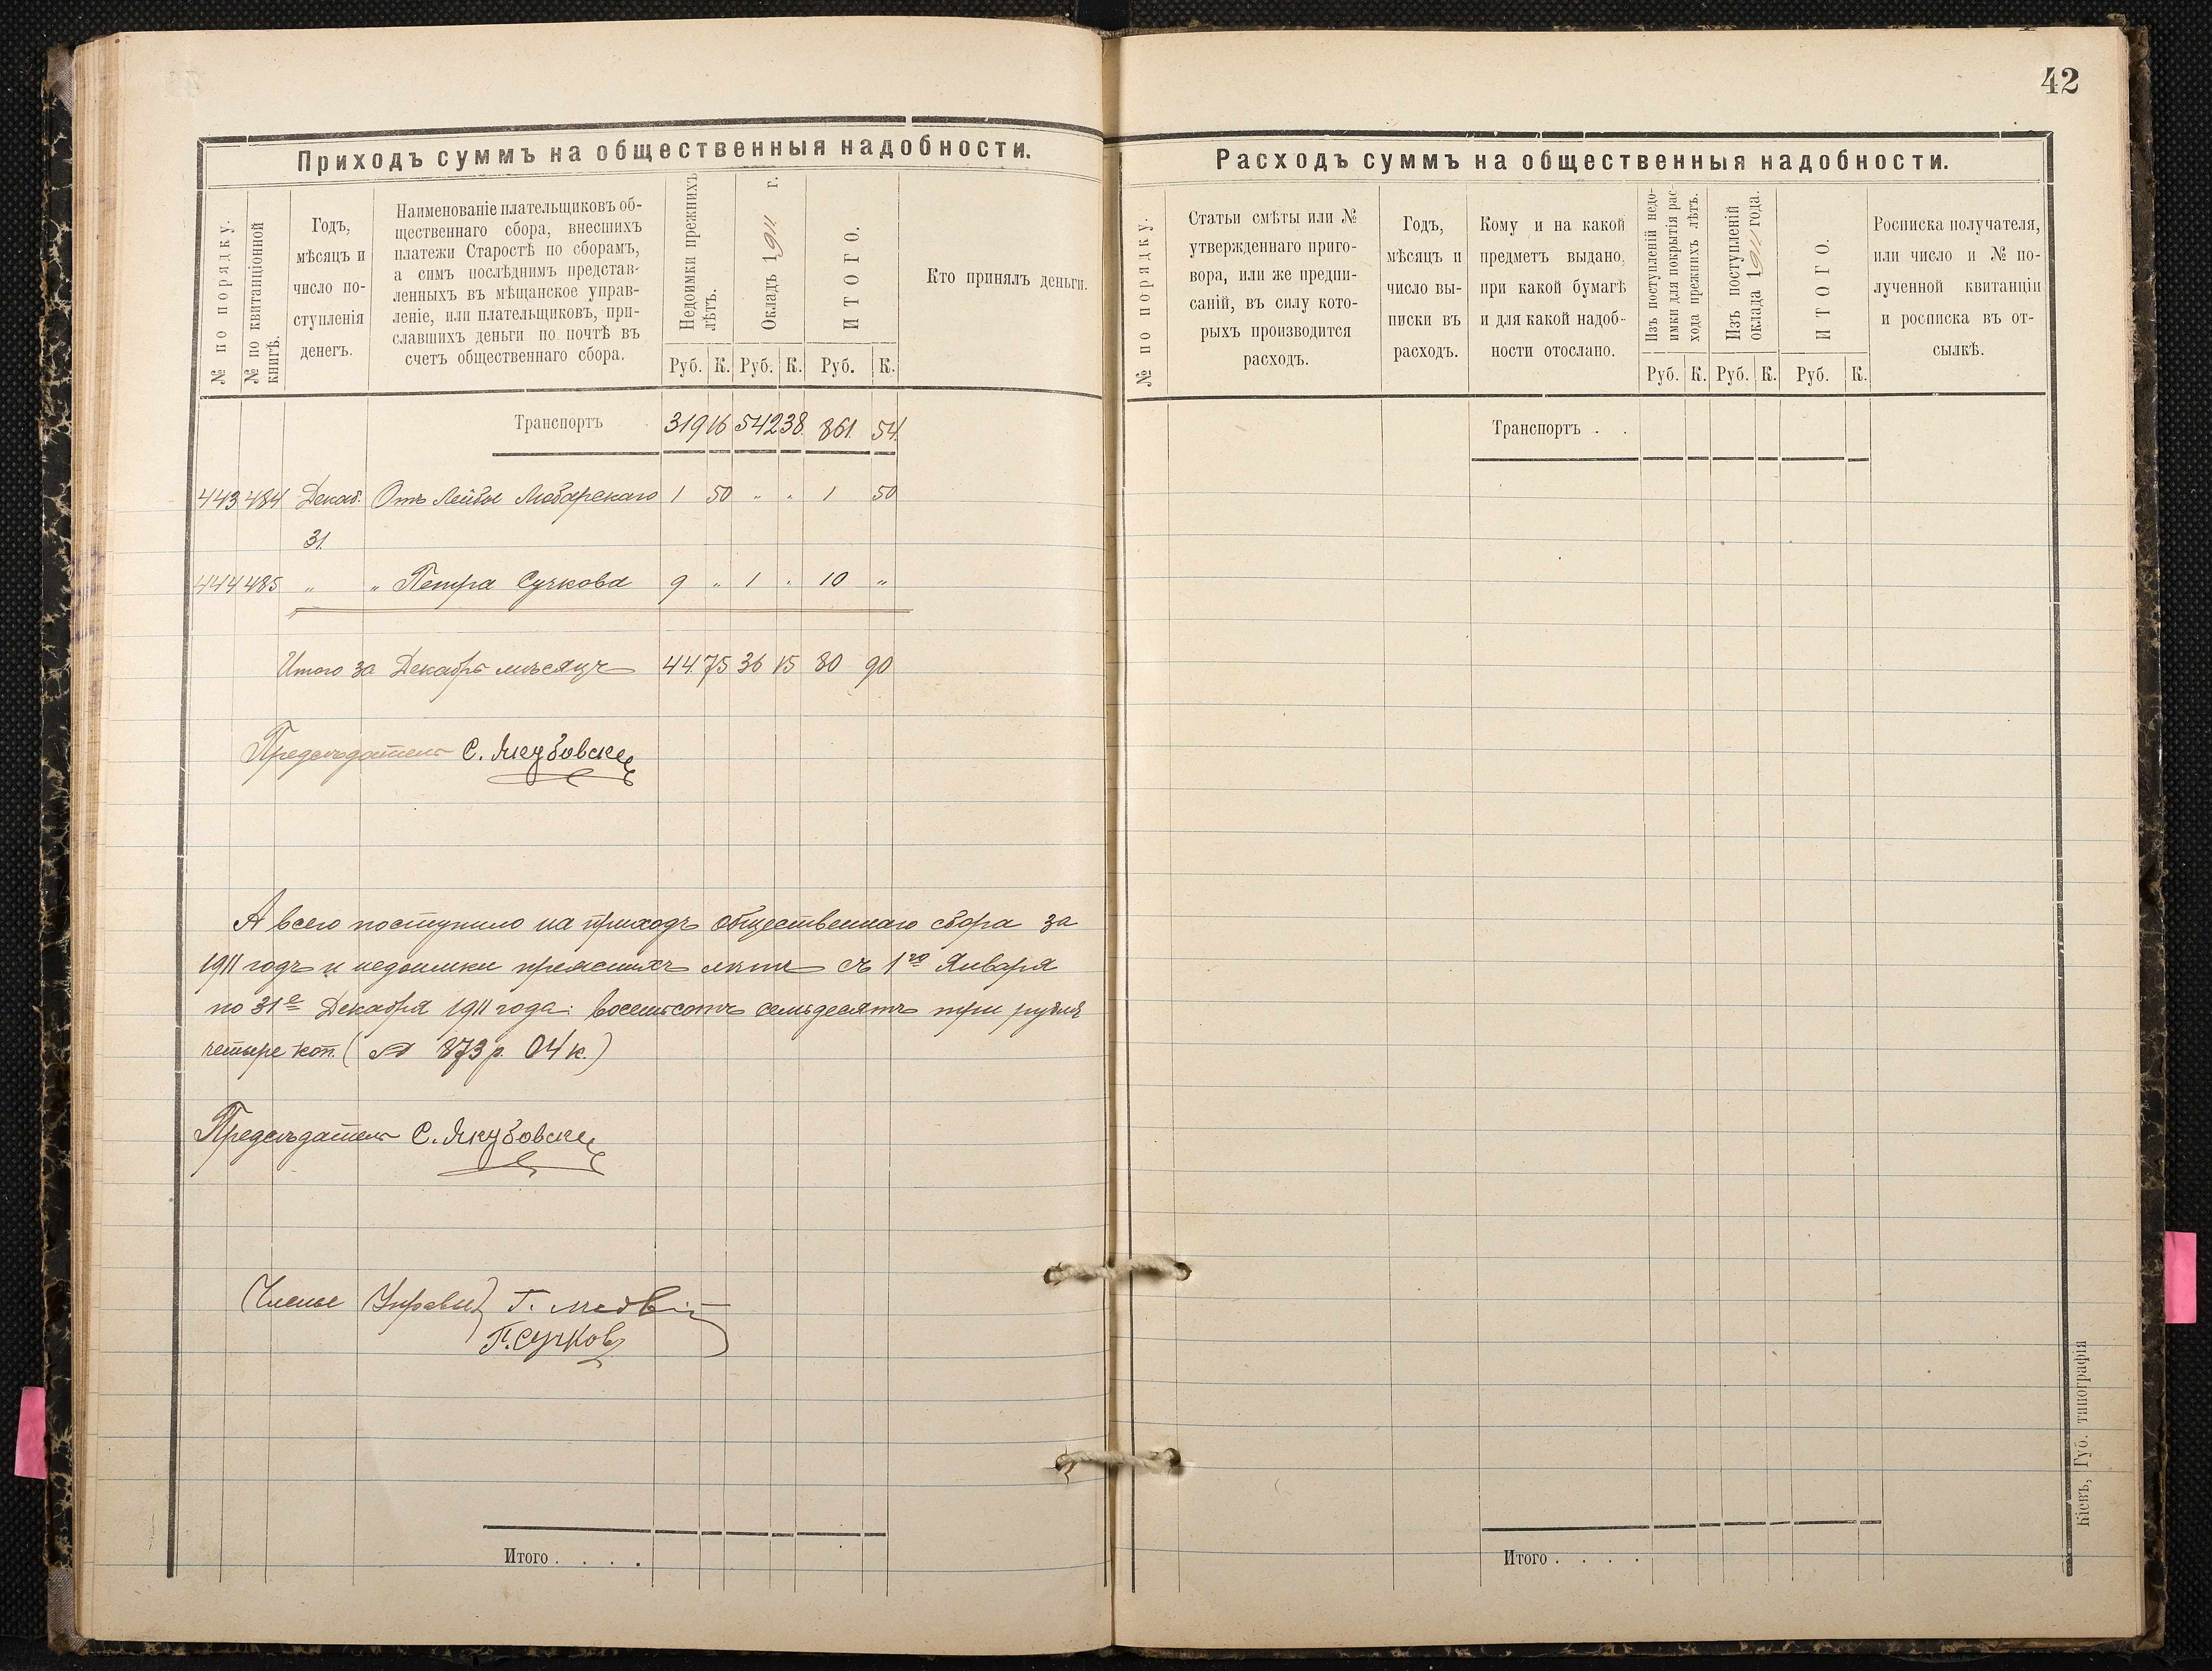 42
Приходъ суммъ на общественныя надобности.
№ по порядку.
№ по квитанціонной
книгѣ.
Годъ,
мѣсяцъ и
число по-
ступленія
денегъ.
Наименованіе плательщиковъ об-
щественнаго сбора, внесшихъ
платежи Старостѣ по сборамъ,
а симъ послѣднимъ представ-
ленныхъ въ мѣщанское управ-
леніе, или плательщиковъ, при-
славшихъ деньги по почтѣ въ
счетъ общественнаго сбора.
Недоимки прежнихъ
лѣтъ.
Окладъ 1911 г.
ИТОГО.
Кто принялъ деньги.
Руб. К. Руб. К. Руб. К.
Транспортъ 319 16 542 38. 861. 54.
443 484 Декаб. Отъ Лейбы Любарскаго 1 50 " " 1 50
31.
444 485 " " Петра Сучкова 9 " 1 " 10 "
Итого за Декабрь мѣсяцъ 44. 75 36 15 80 90
Предсѣдатель С. Якубовскій
А всего поступило на приходъ общественнаго сбора за
1911 годъ и недоимки прежнихъ лѣтъ съ 1го Января
по 31е Декабря 1911 года: восемьсотъ семьдесятъ три рубля
четыре коп. ( 873 р. 04 к.)
Предсѣдатель С. Якубовскій
Члены Управы} Г.
П. Сучковъ
Итого . . . .
Расходъ суммъ на общественныя надобности.
№ по порядку.
Статьи смѣты или №
утвержденнаго приго-
вора, или же предпи-
саній, въ силу кото-
рыхъ производится
расходъ.
Годъ,
мѣсяцъ и
число вы-
писки въ
расходъ.
Кому и на какой
предметъ выдано,
при какой бумагѣ
и для какой надоб-
ности отослано.
Изъ поступленій недо-
имки для покрытія рас-
хода прежнихъ лѣтъ.
Изъ поступленій
оклада 1911 года.
ИТОГО.
Росписка получателя,
или число и № по-
лученной квитанціи
и росписка въ от-
сылкѣ.
Руб. К. Руб. К. Руб. К.
Транспортъ . .
Итого . . . .
Кіевъ, Губ. типографія